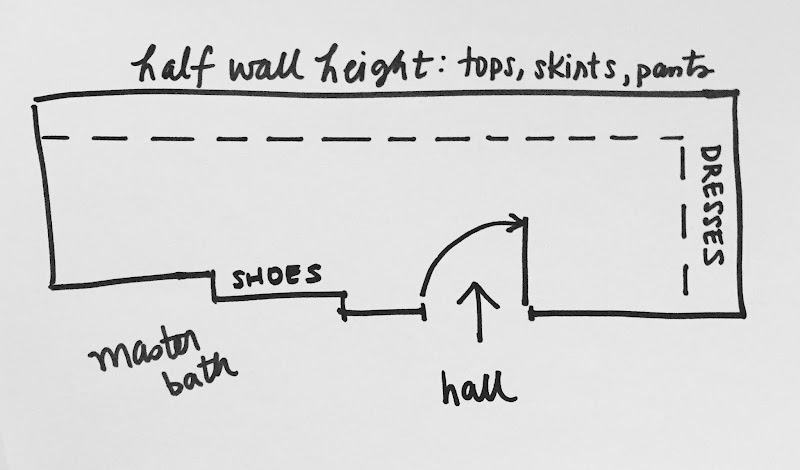 half wall height: tops, skirts, pants
DRESSES
SHOES
master
bath
hall